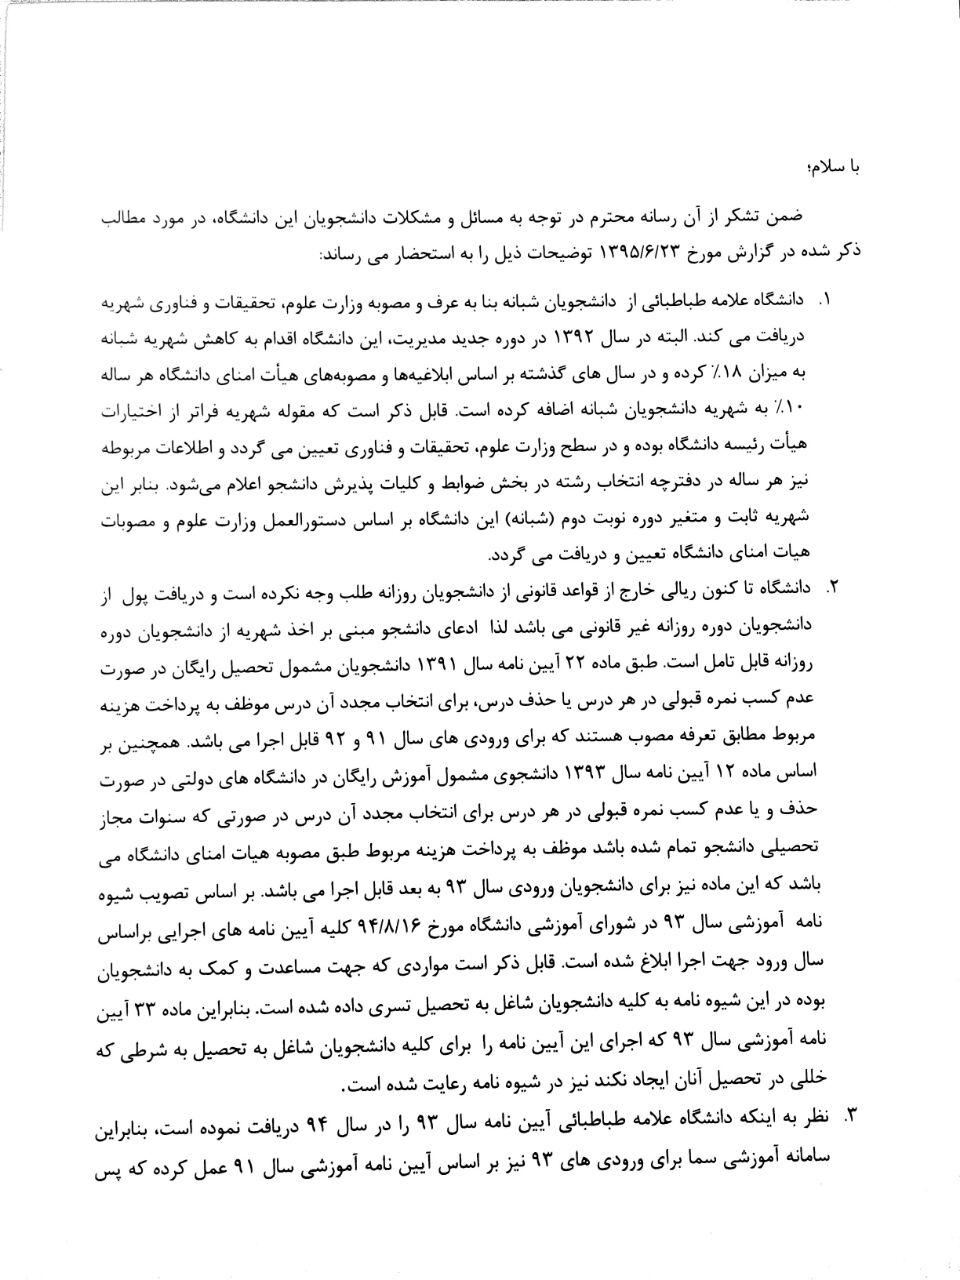 با سلام؛
ضمن تشکر از آن رسانه محترم در توجه به مسائل و مشکلات دانشجویان این دانشگاه، در مورد مطالب
ذکر شده در گزارش مورخ ۱۳۹۵/۶/۲۳ توضیحات ذیل را به استحضار می رساند:
۱. دانشگاه علامه طباطبائی از دانشجویان شبانه بنا به عرف و مصوبه وزارت علوم، تحقیقات و فناوری شهریه
دریافت می کند. البته در سال ۱۳۹۲ در دوره جدید مدیریت، این دانشگاه اقدام به کاهش شهریه شبانه
به میزان ۱۸٪ کرده و در سال های گذشته بر اساس ابلاغیه‌ها و مصوبه‌های هیأت امنای دانشگاه هر ساله
۱۰٪ به شهریه دانشجویان شبانه اضافه کرده است. قابل ذکر است که مقوله شهریه فراتر از اختیارات
هیأت رئیسه دانشگاه بوده و در سطح وزارت علوم، تحقیقات و فناوری تعیین می گردد و اطلاعات مربوطه
نیز هر ساله در دفترچه انتخاب رشته در بخش ضوابط و کلیات پذیرش دانشجو اعلام می‌شود. بنابر این
شهریه ثابت و متغیر دوره نوبت دوم (شبانه) این دانشگاه بر اساس دستورالعمل وزارت علوم و مصوبات
هیات امنای دانشگاه تعیین و دریافت می گردد.
۲. دانشگاه تا کنون ریالی خارج از قواعد قانونی از دانشجویان روزانه طلب وجه نکرده است و دریافت پول از
دانشجویان دوره روزانه غیر قانونی می باشد لذا ادعای دانشجو مبنی بر اخذ شهریه از دانشجویان دوره
روزانه قابل تامل است. طبق ماده ۲۲ آیین نامه سال ۱۳۹۱ دانشجویان مشمول تحصیل رایگان در صورت
عدم کسب نمره قبولی در هر درس یا حذف درس، برای انتخاب مجدد آن درس موظف به پرداخت هزینه
مربوط مطابق تعرفه مصوب هستند که برای ورودی های سال ۹۱ و ۹۲ قابل اجرا می باشد. همچنین بر
اساس ماده ۱۲ آیین نامه سال ۱۳۹۳ دانشجوی مشمول آموزش رایگان در دانشگاه های دولتی در صورت
حذف و یا عدم کسب نمره قبولی در هر درس برای انتخاب مجدد آن درس در صورتی که سنوات مجاز
تحصیلی دانشجو تمام شده باشد موظف به پرداخت هزینه مربوط طبق مصوبه هیات امنای دانشگاه می
باشد که این ماده نیز برای دانشجویان ورودی سال ۹۳ به بعد قابل اجرا می باشد. بر اساس تصویب شیوه
نامه آموزشی سال ۹۳ در شورای آموزشی دانشگاه مورخ ۹۴/۸/۱۶ کلیه آیین نامه های اجرایی براساس
سال ورود جهت اجرا ابلاغ شده است. قابل ذکر است مواردی که جهت مساعدت و کمک به دانشجویان
بوده در این شیوه نامه به کلیه دانشجویان شاغل به تحصیل تسری داده شده است. بنابراین ماده ۳۳ آیین
نامه آموزشی سال ۹۳ که اجرای این آیین نامه را برای کلیه دانشجویان شاغل به تحصیل به شرطی که
خللی در تحصیل آنان ایجاد نکند نیز در شیوه نامه رعایت شده است.
۳. نظر به اینکه دانشگاه علامه طباطبائی آیین نامه سال ۹۳ را در سال ۹۴ دریافت نموده است، بنابراین
سامانه آموزشی سما برای ورودی های ۹۳ نیز بر اساس آیین نامه آموزشی سال ۹۱ عمل کرده که پس